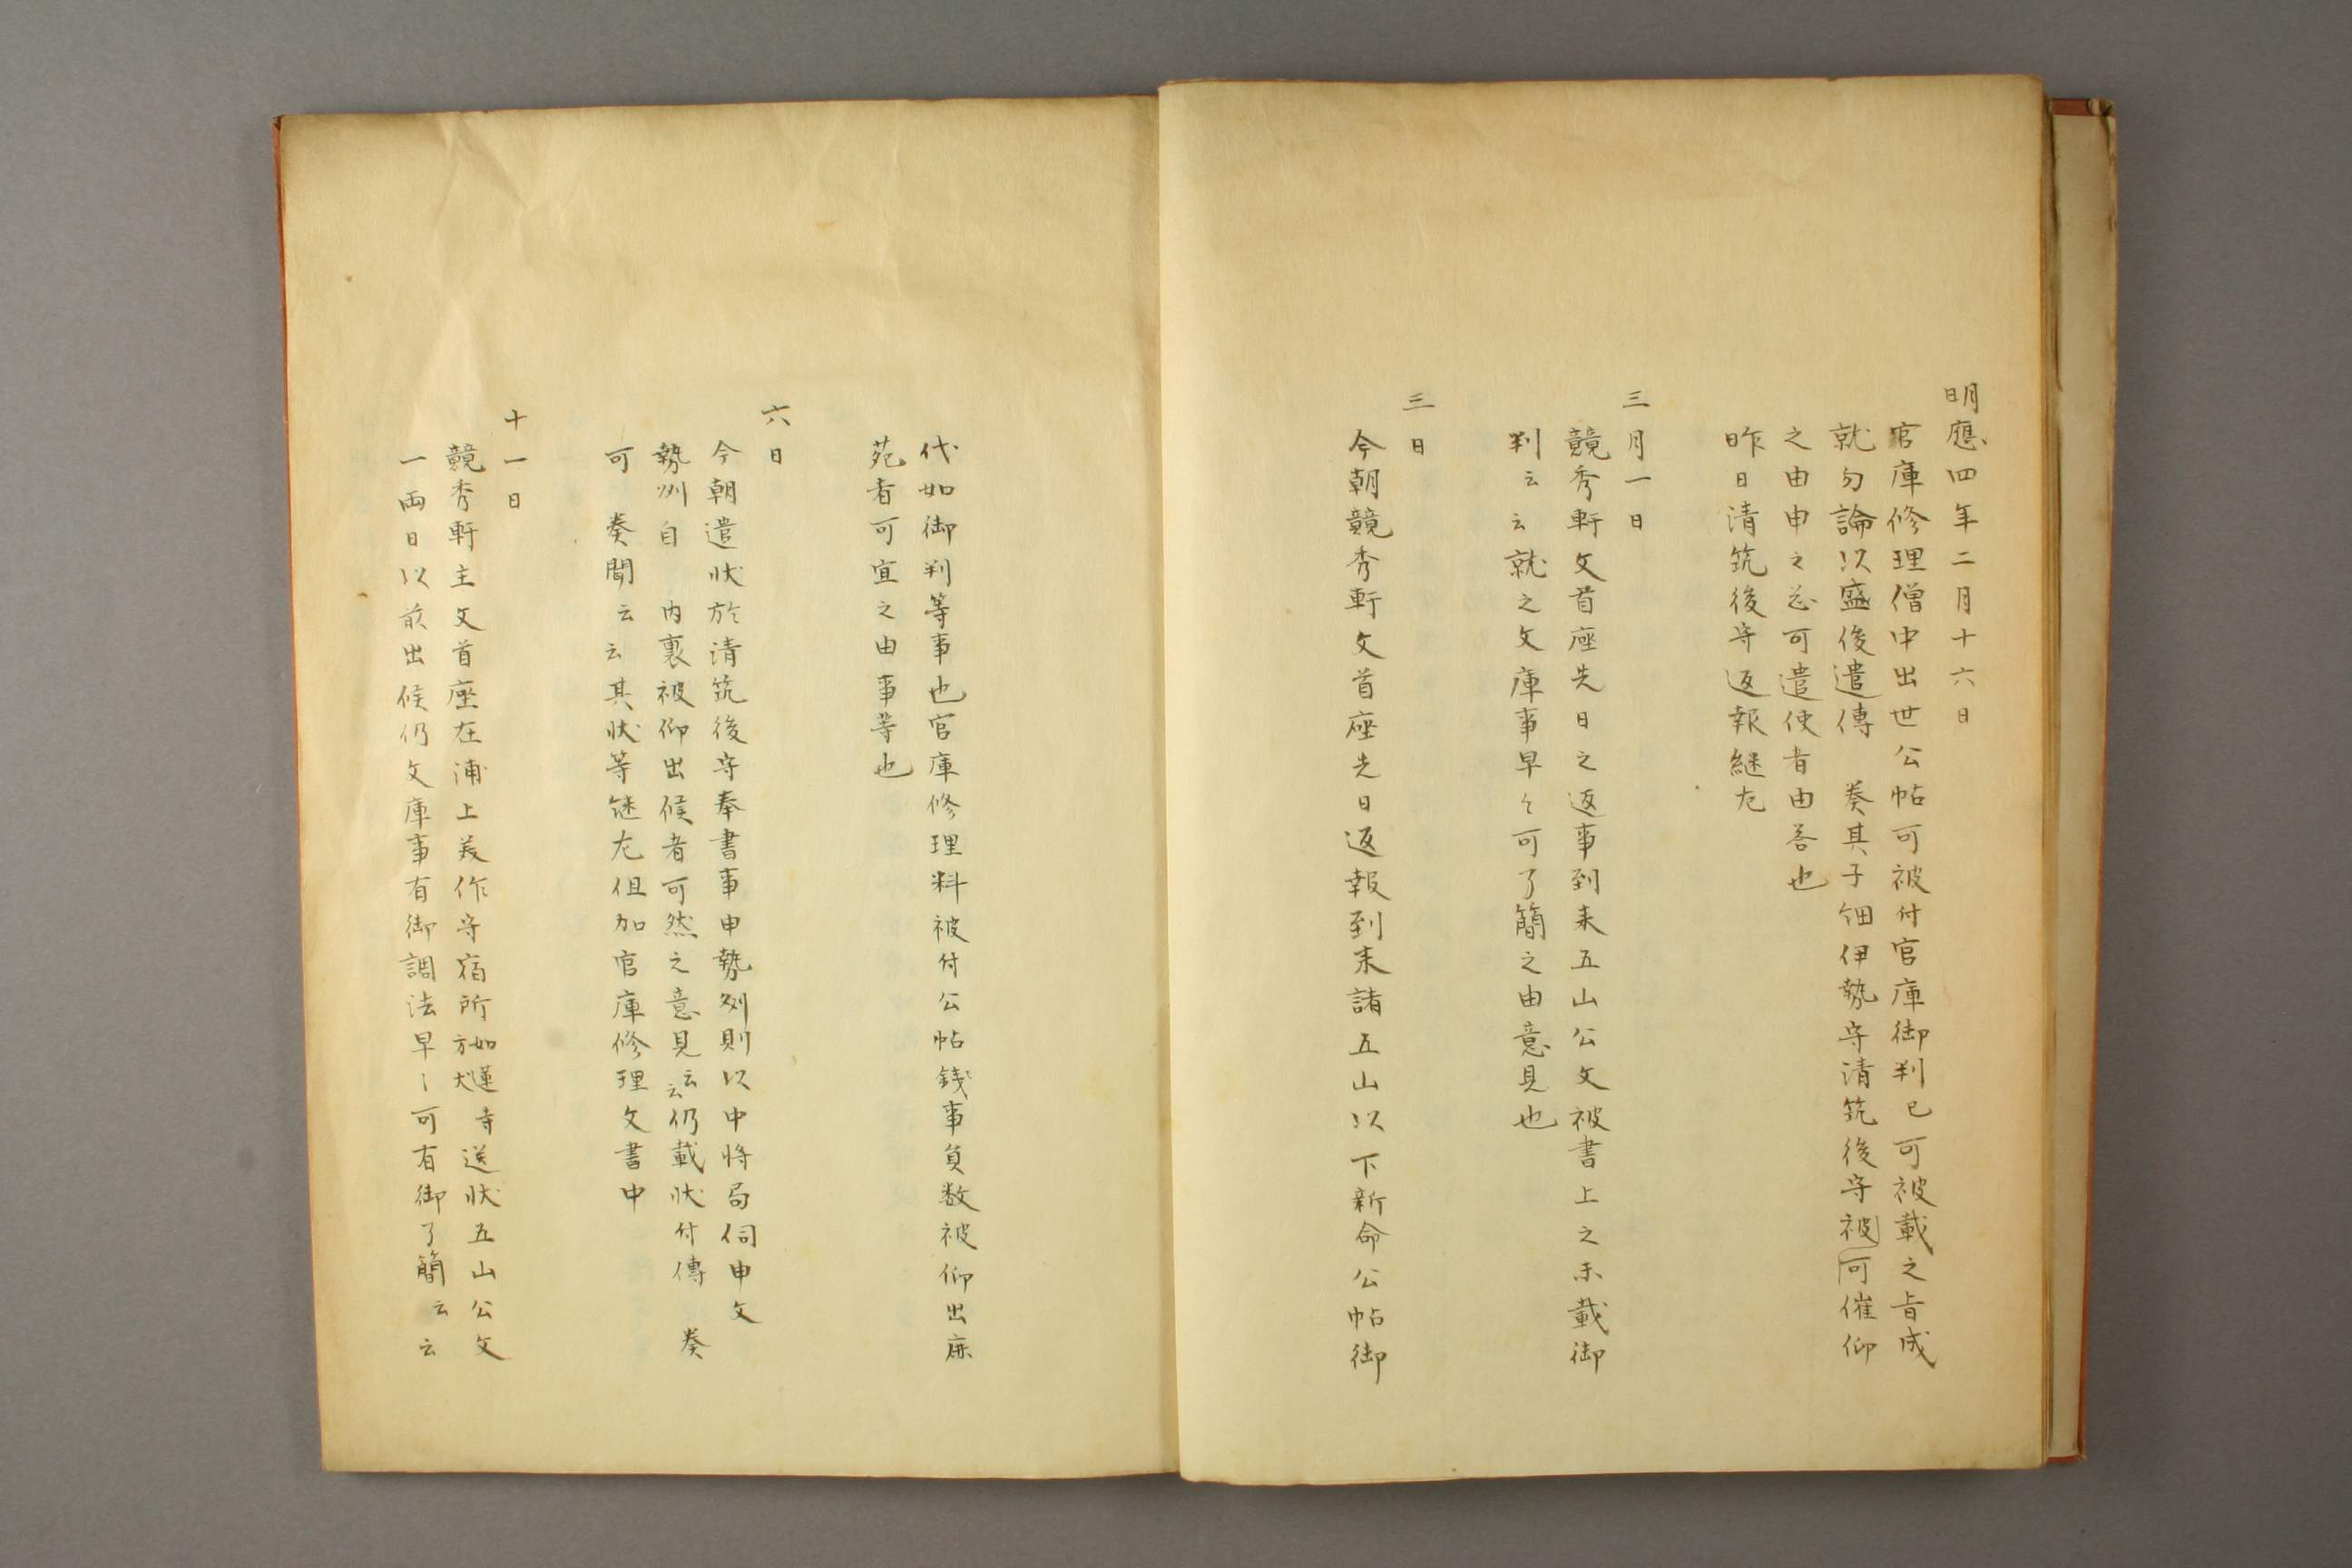 明應四年二月十六日
官庫修理僧中出世公帖可被付官庫御判已可被載之旨成
就勾論以盛後遣傳　奏其子細伊勢守清筑後守被可催仰
之由申之忩可遣使者由答也
昨日清筑後守返報継左
三月一日
競秀軒文首座先日之返事到来五山公文被書上之未載御
判云云就之文庫事早々可了簡之由意見也
三日
今朝競秀軒文首座先日返報到来諸五山以下新命公帖御
代如御判等事也官庫修理料被付公帖銭事負数被仰出鹿
苑者可宜之由事等也
六日
今朝遣状於清筑後守奉書事申勢州則以中将局伺申文
勢州自　内裏被仰出候者可然之意見云云仍載状付傳　奏
可　奏聞云云其状等継左但加官庫修理文書中
十一日
競秀軒主文首座在浦上美作守宿所如蓮寺方丈送状五山公文
一両日以前出候仍文庫事有御調法早〻可有御了簡云云